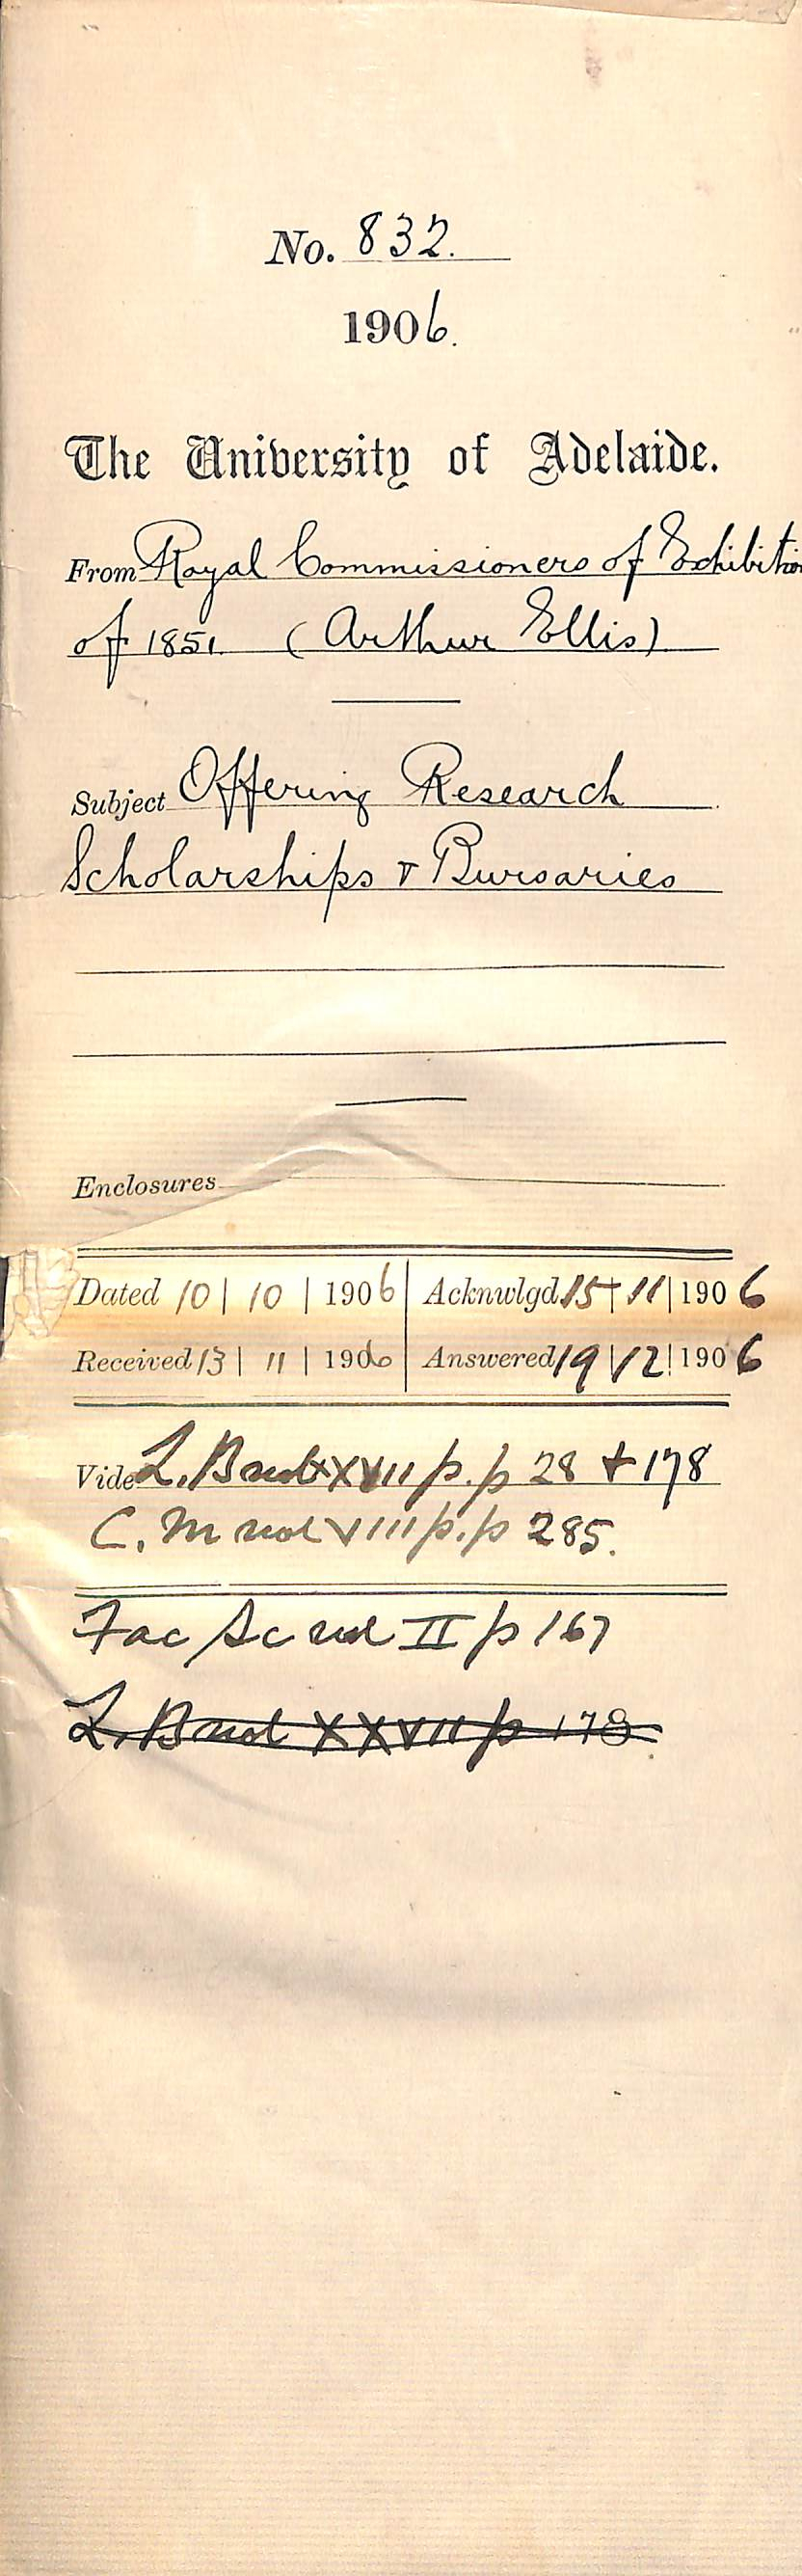 No. 832.
1906.
The University of Adelaide.
From Royal Commissioners of Exhibition
of 1851. (Arthur Ellis)
Subject Offering Research
Scholarships & Bursaries
Enclosures
Dated 10 | 10 | 1906 Acknwlgd 15 | 11 | 1906
Received 13 | 11 | 1906 Answered 19 | 12 | 1906
Vide L. B vol XXVII p.p 28 + 178
C. M vol VIII p.p 285.
Fac Sc vol II p 167
L. B vol XXVII p 178